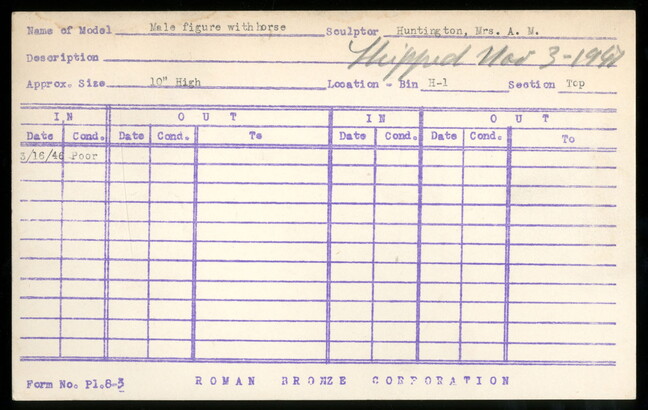 Name of Model Male figure withhorse Sculptor Huntington, Mrs. A. M.
Description Shipped Nov 3-1947
Approx. Size 10" High Location - Bin H-1 Section Top
IN OUT IN OUT
Date Cond. Date Cond. To Date Cond. Date Cond. To
3/16/46 Poor
Form No. Pl.8-3 ROMAN BRONZE CORPORATION